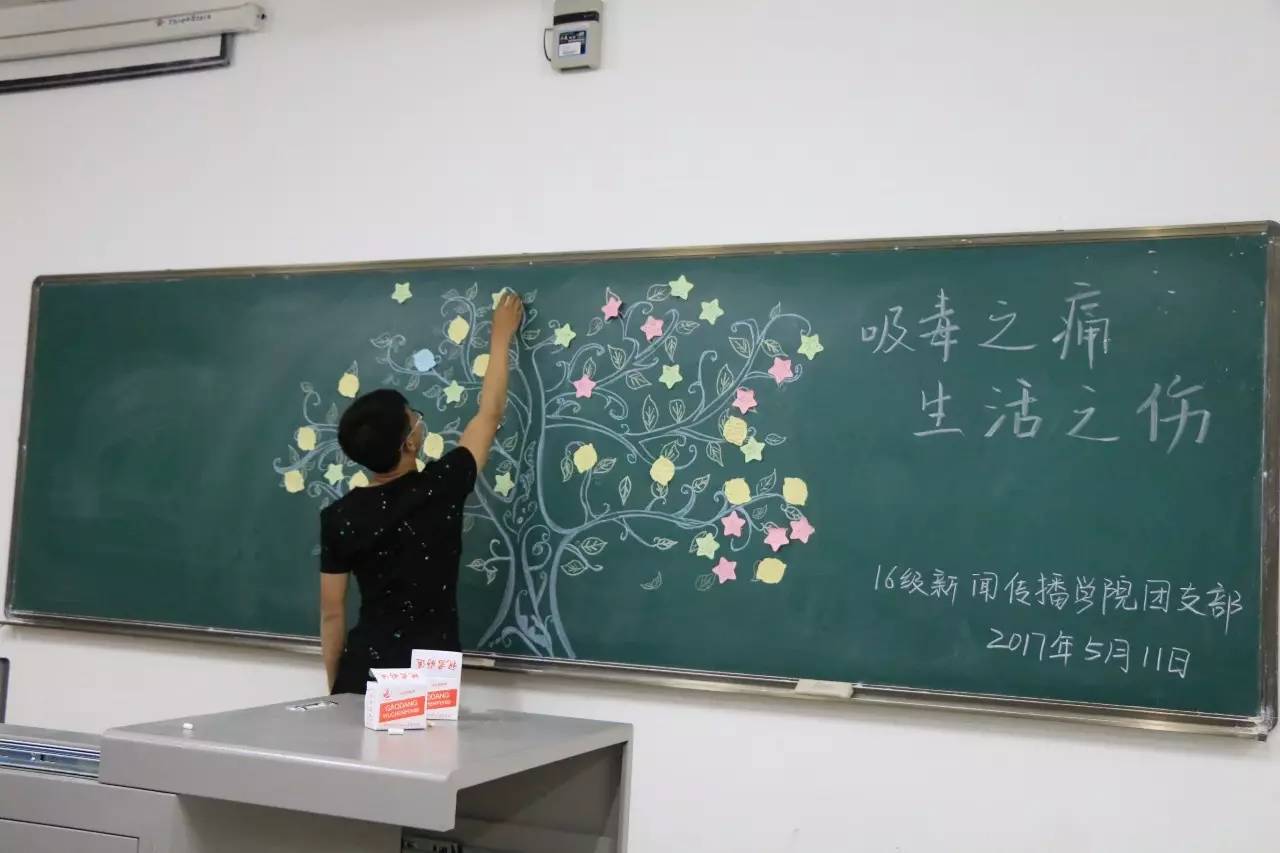 吸毒之痛
生活之伤
16级新闻传播学院团支部
2017年5月11日
GAODANG
WUCHENFENBI